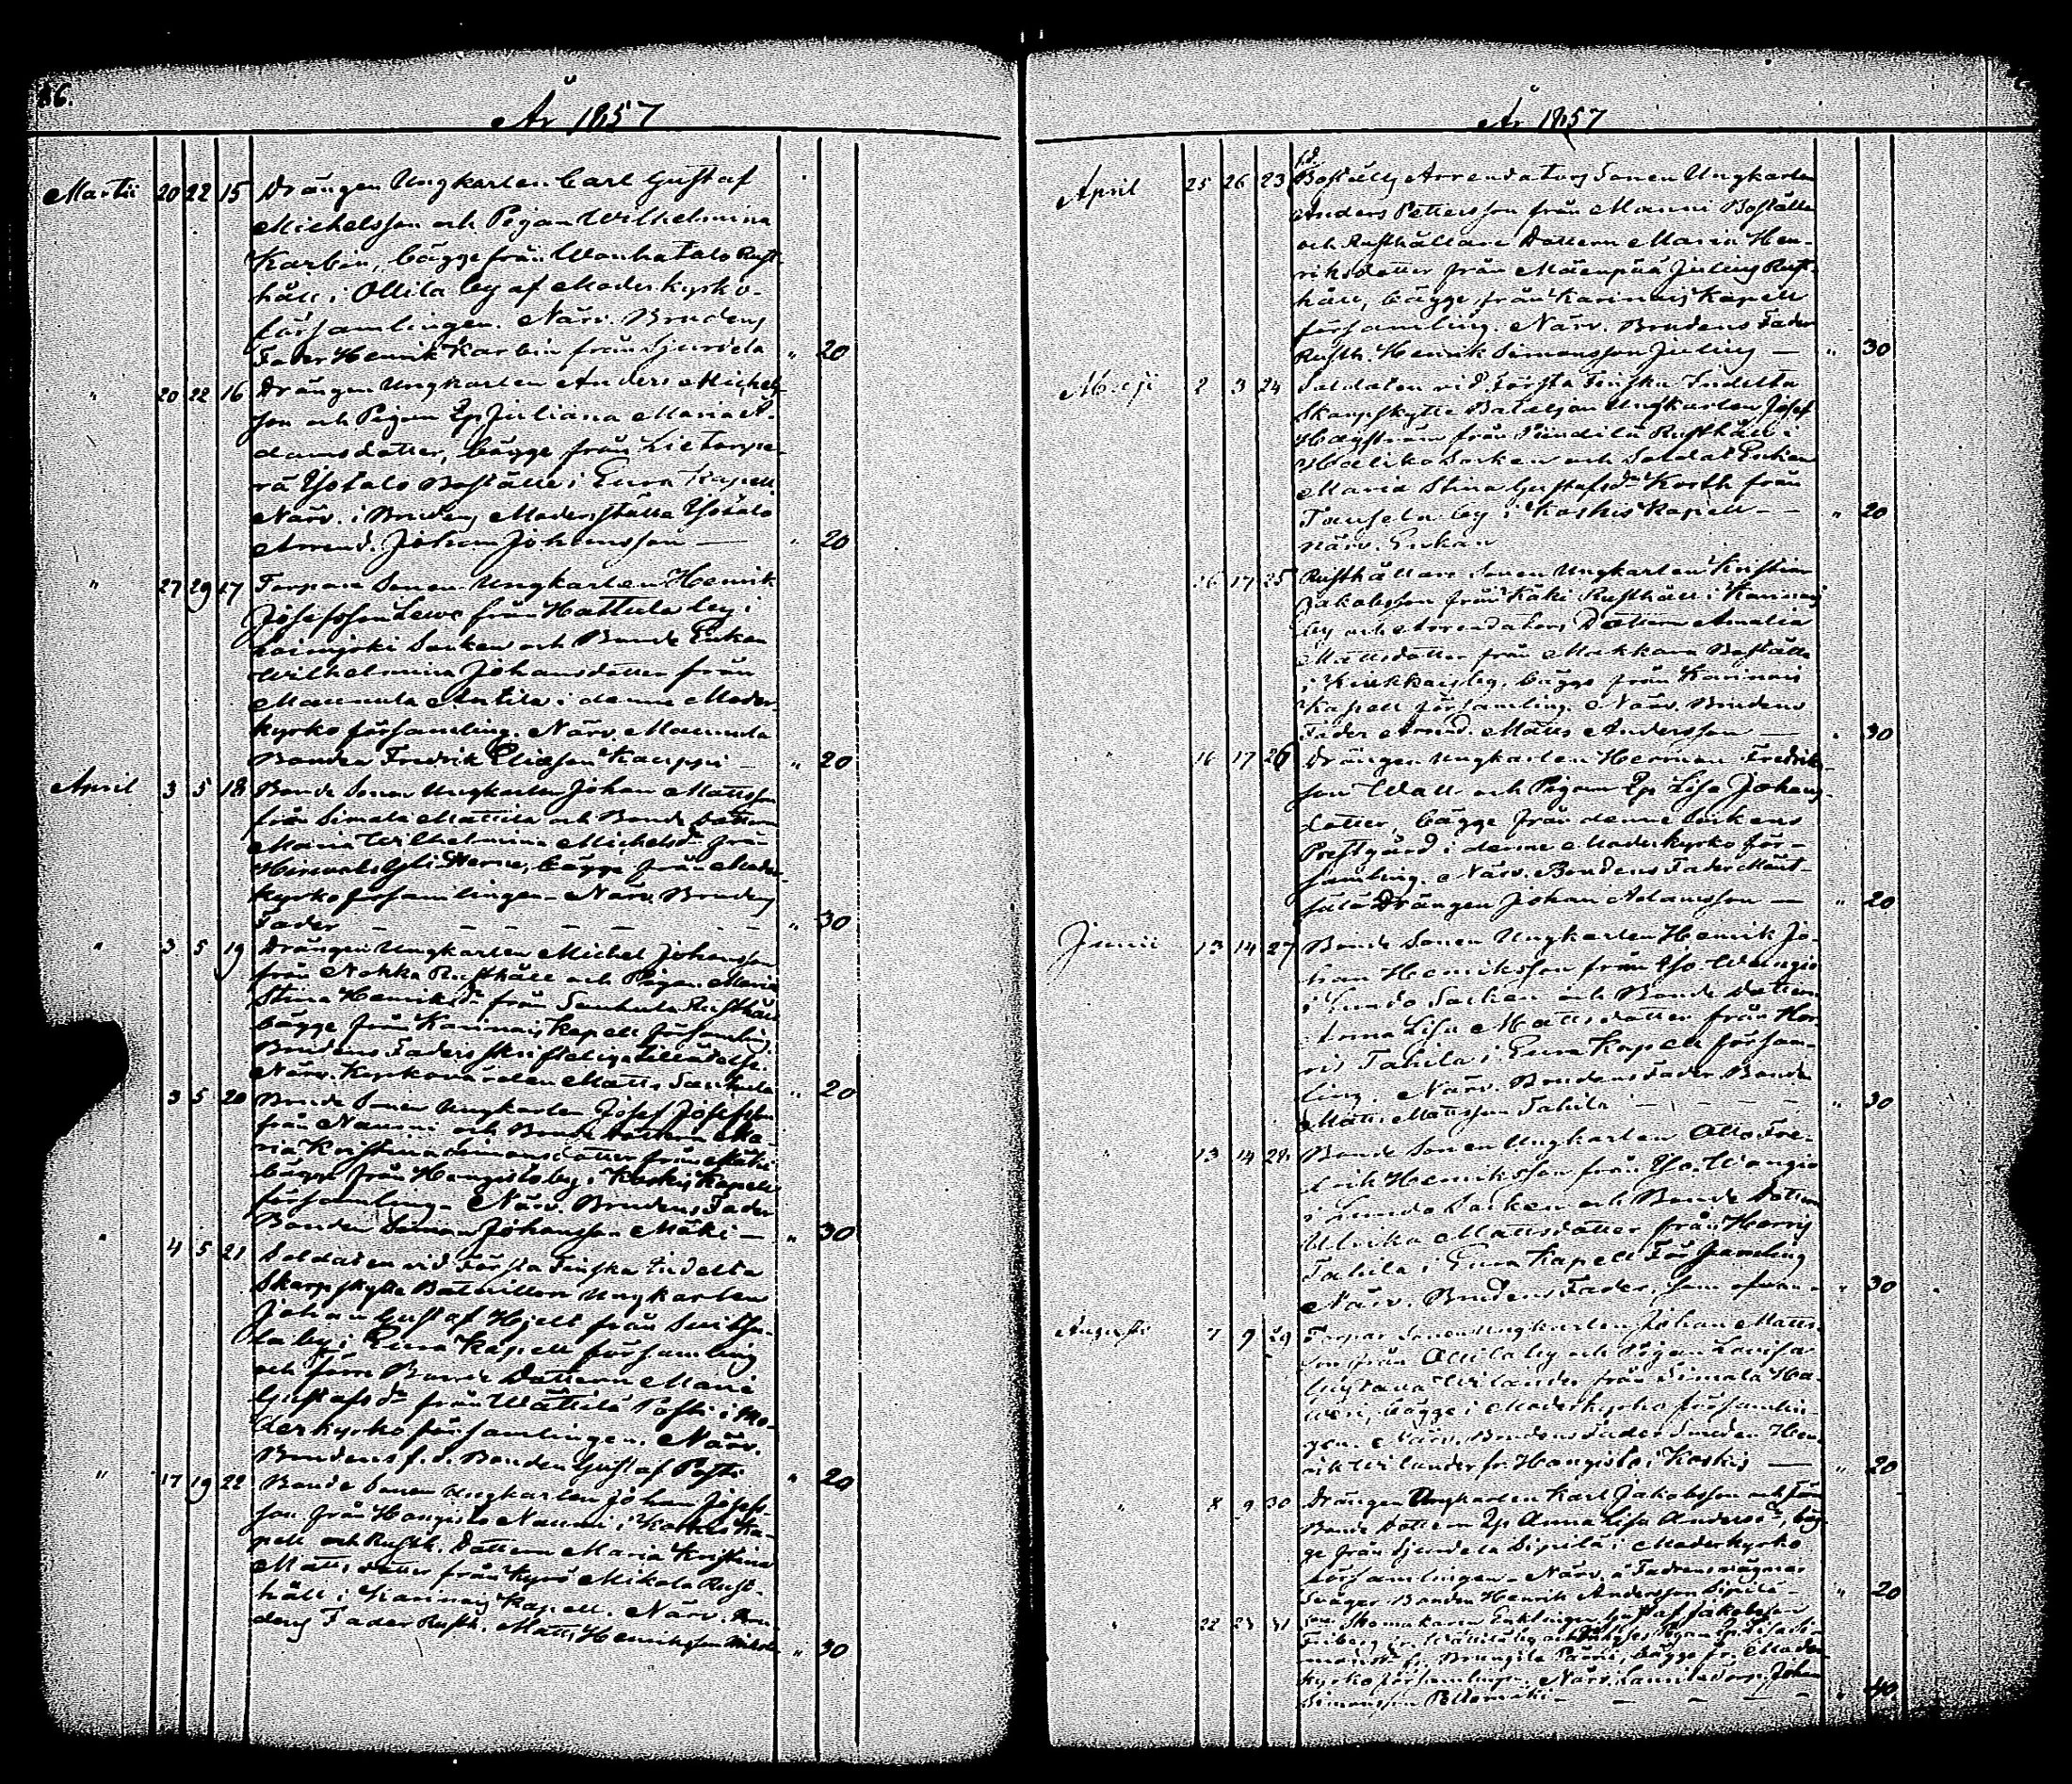 86.
År 1857
Martii 20 22 15 Drängen Ungkarlen Carl Gustaf
Michelsson och Pigan Wilhelmina
Karbin, bägge från Wanhatalo Rust-
håll i Ollila by af Moderkyrko-
församlingen. Närv. Brudens
Fader Henrik Karbin från Sjurdela " 20
" 20 22 16 Drängen Ungkarlen Anders Michels-
son och Pigan Ep. Juliana Maria A-
damsdotter, bägge från Lietorpe-
rä Ylotalo Boställe i Eura Kapell
Närv. i Brudens Moderställe
Arrend. Johan Johansson — " 20
" 27 29 17 Torpare Sonen Ungkarlen Henrik
Josefsson från Hattula by i
Loimijoki Socken och Bonde Enkan
Wilhelmina Johansdotter från
Mannula Anttila i denna Moder-
kyrko församling. Närv. Mannula
Bonden Fredrik Eliasson Kauppi — " 20
April 3 5 18 Bonde Sonen Ungkarlen Johan Mattsson
från Simala Mattila och Bonde Dottern
Maria Wilhelmina Michelsdr från
bägge från Moder-
kyrko församlingen. Närv. Brudens
Fader — — — — — " 30
" 3 5 19 Drängen Ungkarlen Michel Johansson
från Nokka Rusthåll och Pigan Maria
Stina Henriksdr från Rusthåll
bägge från Karinais Kapell församling
Brudens Faders skriftelige tillåtelse.
Närv. Kyrkovärden Matts " 20
3 5 20 Bonde Sonen Ungkarlen Josef Josefsson
från Naumi och Bonde Dottern Ma-
ria Kristina Simonsdotter från Mäki
bägge från Hongisto by i Koskis Kapell
församling. Närv. Brudens Fader
Bonden Simon Johansson Mäki — " 30
" 4 5 21 Soldaten vid Första Finska Indelta
Skarpskytte Bataillon Ungkarlen
Johan Gustaf Hjelt från
la by i Eura Kapell församling
och förre Bonde Dottern Maria
Gustafsdr från Wättilä Posti i Mo-
derkyrko församlingen. Närv.
Brudens f. d. Bonden Gustaf Posti " 20
" 17 19 22 Bonde Sonen Ungkarlen Johan Josefs-
son från Hongisto Naumi i Koskis Ka-
pell och Rusth. Dottern Maria Kristina
Mattsdotter från Kyrö Mikola Rust-
håll i Karinais Kapell. Närv. Bru-
dens Fader Rusth. Matts Henriksson Mikola " 30
År 1857
April 25 26 23 f.d. Boställs Arrendators Sonen Ungkarlen
Anders Pettersson från Manni Boställe
och Rusthållare Dottern Maria Hen-
riksdotter från Mäenpää Julius Rust-
håll, bägge från Karinais Kapell
församling. Närv. Brudens Fader
Rusth. Henrik Simonsson Julius — " 30
Maji 2 3 24 Soldaten vid Första Finska Indelta
Skarpskytte Bataljon Ungkarlen Josef
Hagström från Rusthåll i
Haliko Socken och Soldat Enkan
Maria Stina Gustafsdr Korth från
by i Koskis Kapell — — " 20
närv. Enkan
16 17 25 Rusthållare Sonen Ungkarlen Kristian
Jakobsson från Kaki Rusthåll i Karinais
by och Arrendators Dottern Amalia
Mattsdotter från Makkara Boställe
i by, bägge från Karinais
Kapell församling. Närv. Brudens
Fader Arrend. Matts Andersson — " 30
" 16 17 26 Drängen Ungkarlen Herman Fredriks-
son Wall och Pigan Ep. Lisa Johans-
dotter, bägge från denna Sockens
Prestgård i denna Moderkyrko för-
samling. Närv. Brudens Fader
Drängen Johan Adamsson — " 20
Junii 13 14 27 Bonde Sonen Ungkarlen Henrik Jo-
han Henriksson från Yso Wangio
i Lundo Socken och Bonde Dottern
Anna Lisa Mattsdotter från Hor-
ris Tahila i Eura Kapell försam-
ling. Närv. Brudens Fader Bonden
Matts Mattsson Tahila — — — " 30
" 13 14 28 Bonde Sonen Ungkarlen Otto Fre-
drik Henriksson från Yso Wangio
i Lundo Socken och Bonde Dottern
Ulrika Mattsdotter från Horris
Tahila i Eura Kapell Församling
Närv. Brudens Fader, som ofvan — " 30
Augusti 7 9 29 Torpar Sonen Ungkarlen Johan Matts-
son från Ollila by och Pigan Lovisa
Gustava Wilander från Simala Ha-
veri, bägge i Moderkyrko församlin-
gen. Närv. Brudens Fader Smeden Hen-
rik Wilander fr. Hongisto i Koskis — " 20
" 8 9 30 Drängen Ungkarlen Karl Jakobsson och förre
Bonde Dottern Ep. Anna Lisa Andersdr, bäg-
ge från Sjurdela Sipilä i Moderkyrko
församlingen. Närv. å Fadrens vägnar
Svåger Bonden Henrik Andersson Sipilä — " 20
" 22 23 31 Skomakaren Enklingen Gustaf Jakobsson
Friberg fr. by och Pigan Ep.
bägge fr. Moder-
kyrko församlingen. Närv. Johan
Simonsson — — — — " 40